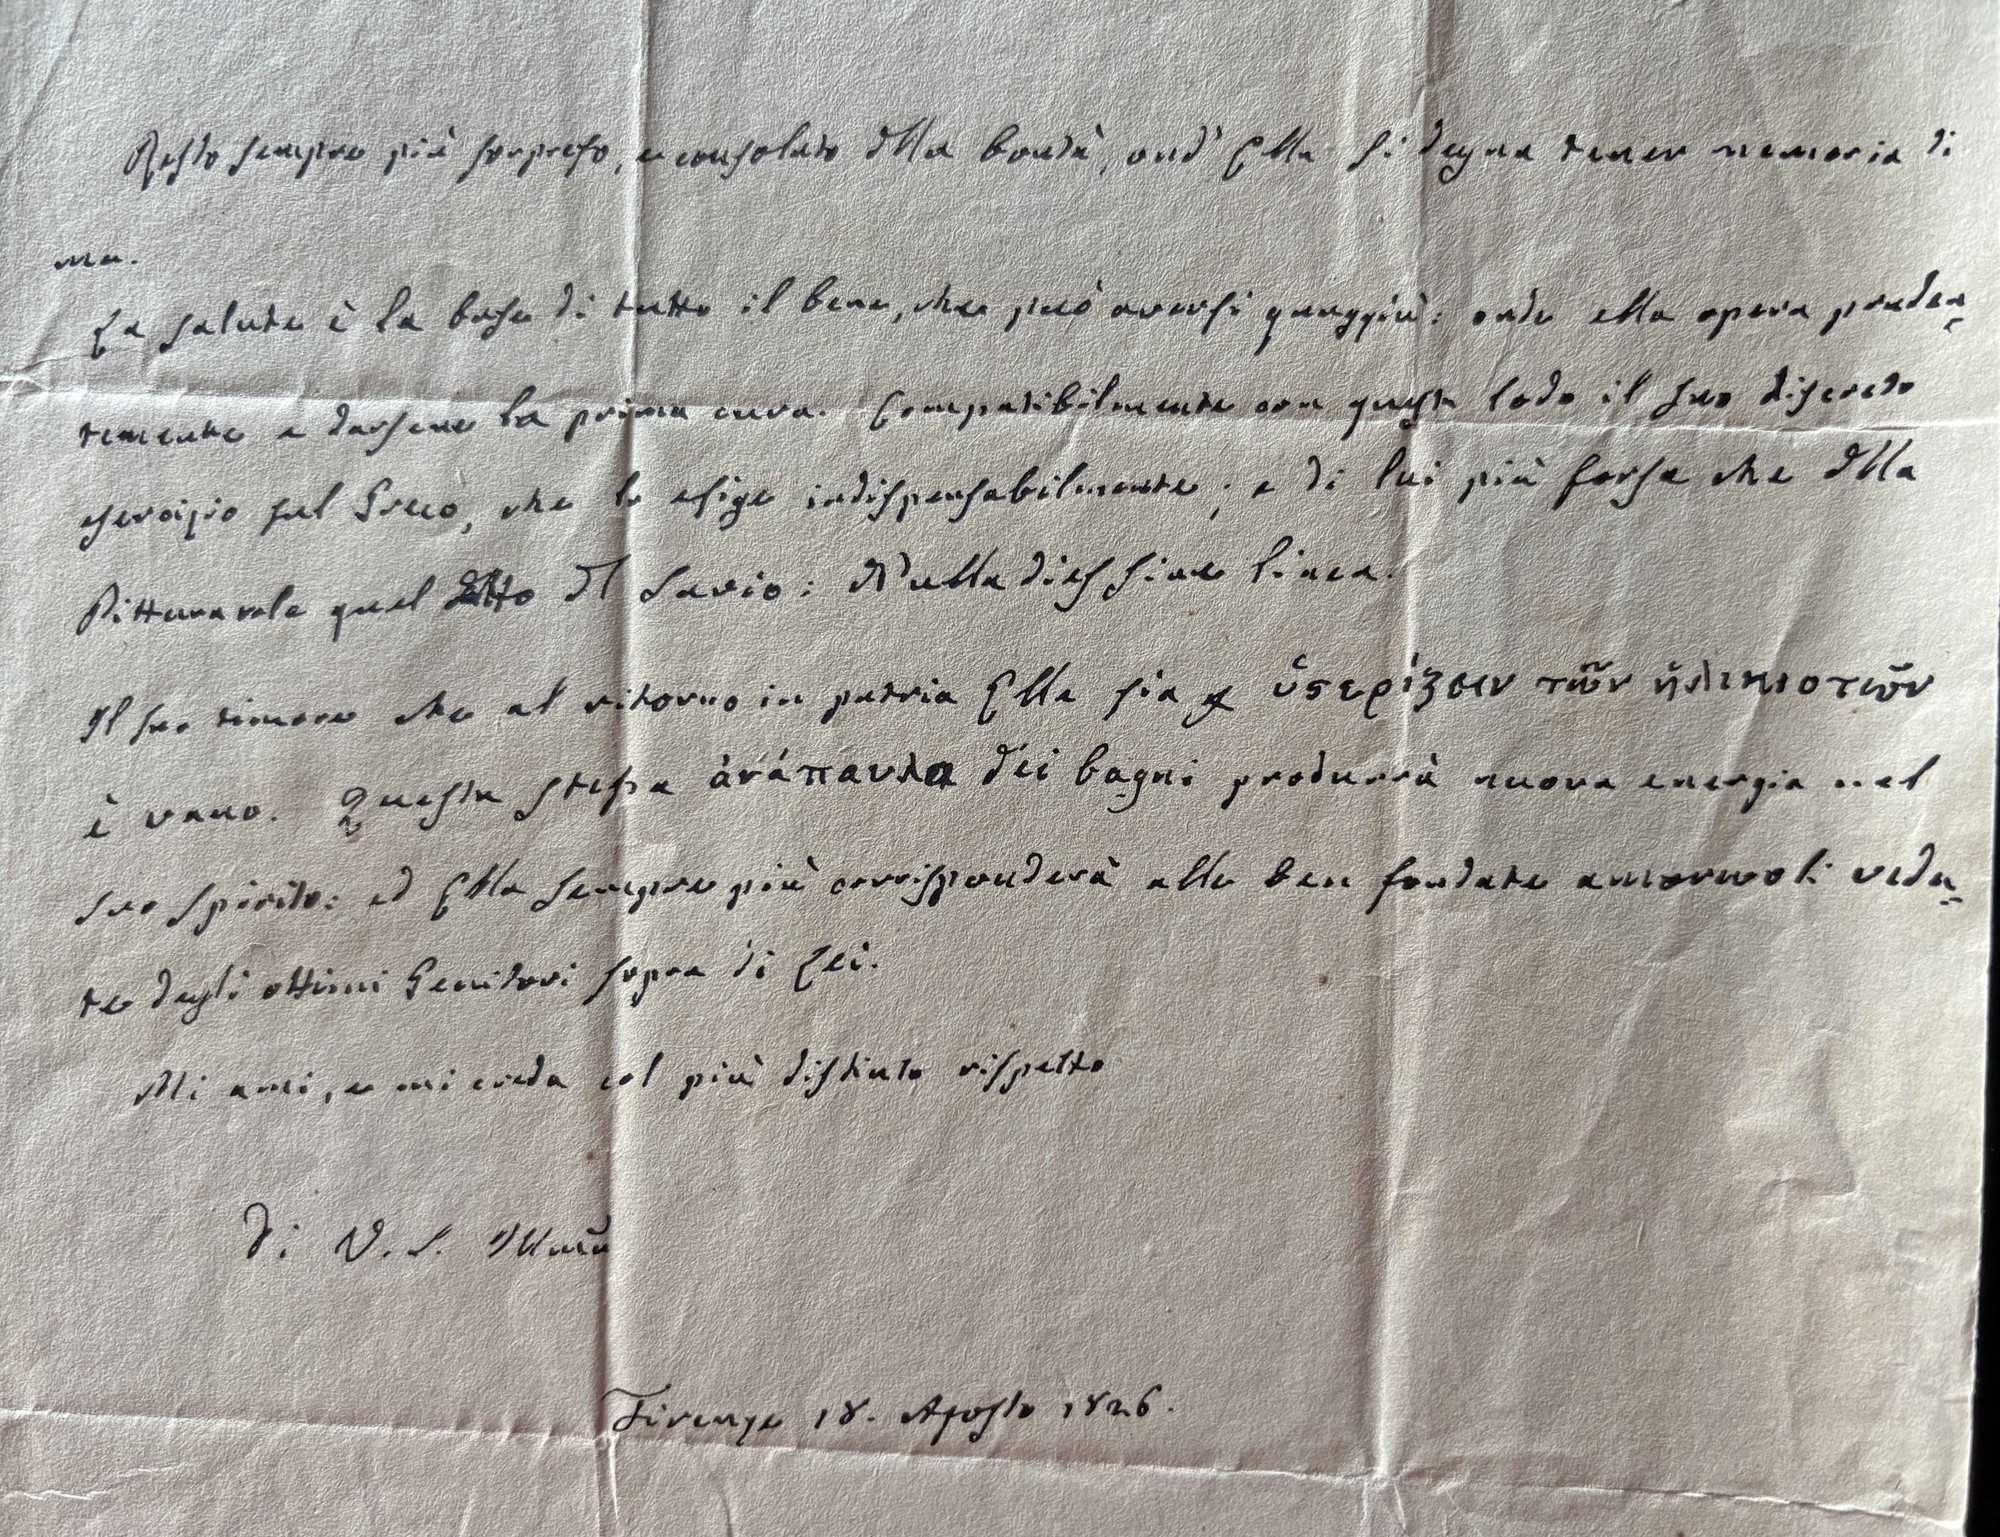 Resto sempre più sorpreso, e consolato della bontà, ond' Ella si degna tener memoria di
me.
La salute è la base di tutto il bene, che può aversi quaggiù: onde ella opera pruden-
temente a darsene la prima cura. Compatibilmente con questa lodo il suo discreto
esercizio sul Greco, che lo esige indispensabilmente; e di lui più forse che della
Pittura vale quel detto del Savio: Nulla dies sine linea.
Il suo timore che al ritorno in patria Ella sia ὑστερίζειν τῶν ἡλικιοτῶν
è vano. Questa stessa ἀνάπαυλα dei bagni produrrà nuova energia nel
suo spirito: ed Ella sempre più corrisponderà alle ben fondate amorevoli vedu=
te degli ottimi Genitori sopra di Lei.
Mi ami, e mi creda col più distinto rispetto
Di V. S. Illma
Firenze 18. Agosto 1826.